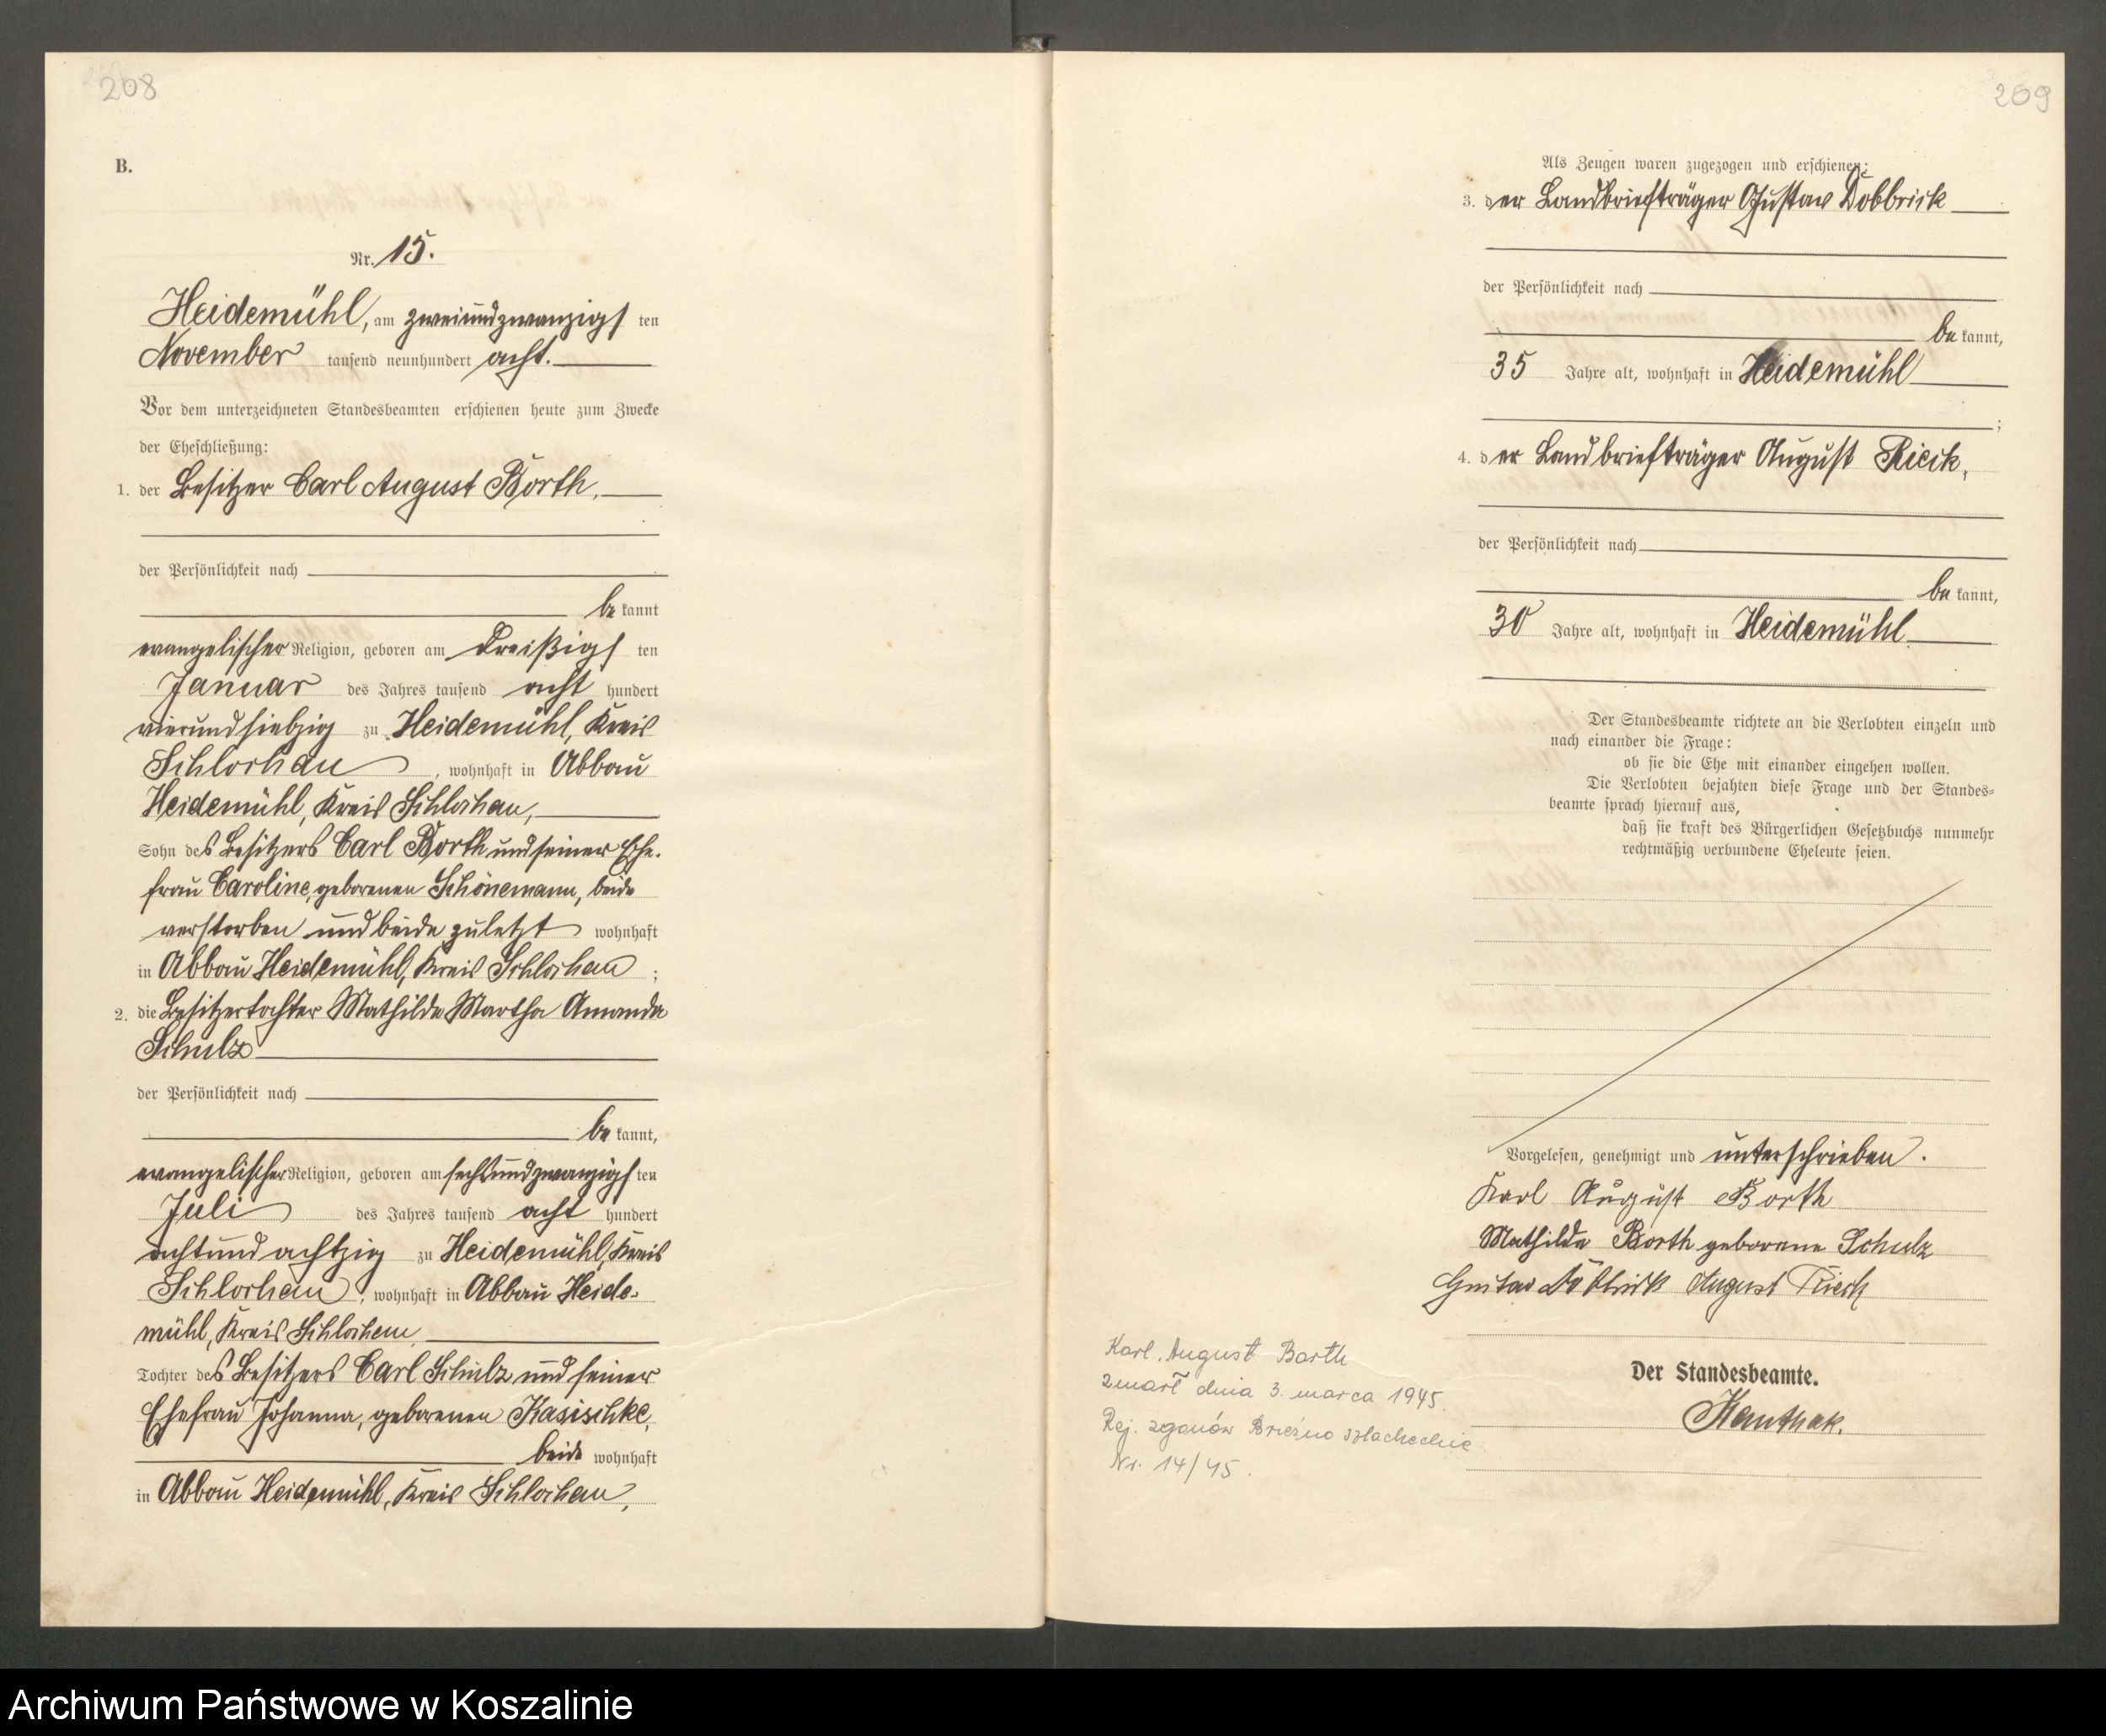 208
B.
Nr. 15.
Heidemühl, am zweiundzwanzigsten
November tausend neunhundert acht.
Vor dem unterzeichneten Standesbeamten erschienen heute zum Zwecke
der Eheschließung:
1. der Besitzer Carl August Borth,
der Persönlichkeit nach
bekannt
evangelischer Religion, geboren am dreißigsten
Januar des Jahres tausend acht hundert
vierundsiebzig zu Heidemühl, Kreis
Schlochau, wohnhaft in Abbau
Heidemühl, Kreis Schlochau,
Sohn des Besitzers Carl Borth und seiner Ehe-
frau Caroline, geborenen Schönemann, beide
verstorben und beide zuletzt wohnhaft
in Abbau Heidemühl, Kreis Schlochau;
2. die Besitzertochter Mathilde Martha Amanda
Schulz
der Persönlichkeit nach
bekannt,
evangelischer Religion, geboren am sechsundzwanzigsten
Juli des Jahres tausend acht hundert
achtundachtzig zu Heidemühl, Kreis
Schlochau, wohnhaft in Abbau Heide-
mühl, Kreis Schlochau,
Tochter des Besitzers Carl Schulz und seiner
Ehefrau Johanna, geborenen Kasischke,
beide wohnhaft
in Abbau Heidemühl, Kreis Schlochau,
209
Als Zeugen waren zugezogen und erschienen:
3. der Landbriefträger Gustav Döbbrick
der Persönlichkeit nach
bekannt,
35 Jahre alt, wohnhaft in Heidemühl
;
4. der Landbriefträger August Rieck,
der Persönlichkeit nach
bekannt,
30 Jahre alt, wohnhaft in Heidemühl.
Der Standesbeamte richtete an die Verlobten einzeln und
nach einander die Frage:
ob sie die Ehe mit einander eingehen wollen.
Die Verlobten bejahten diese Frage und der Standes-
beamte sprach hierauf aus,
daß sie kraft des Bürgerlichen Gesetzbuchs nunmehr
rechtmäßig verbundene Eheleute seien.
Vorgelesen, genehmigt und unterschrieben.
Karl August Borth
Mathilde Borth geborene Schulz
Gustav Döbbrick August Rieck
Der Standesbeamte.
Karl August Barth
zmarł dnia 3. marca 1945.
Rej. zgonów Brzeźno szlacheckie
Nr. 14/45.
Archiwum Państwowe w Koszalinie